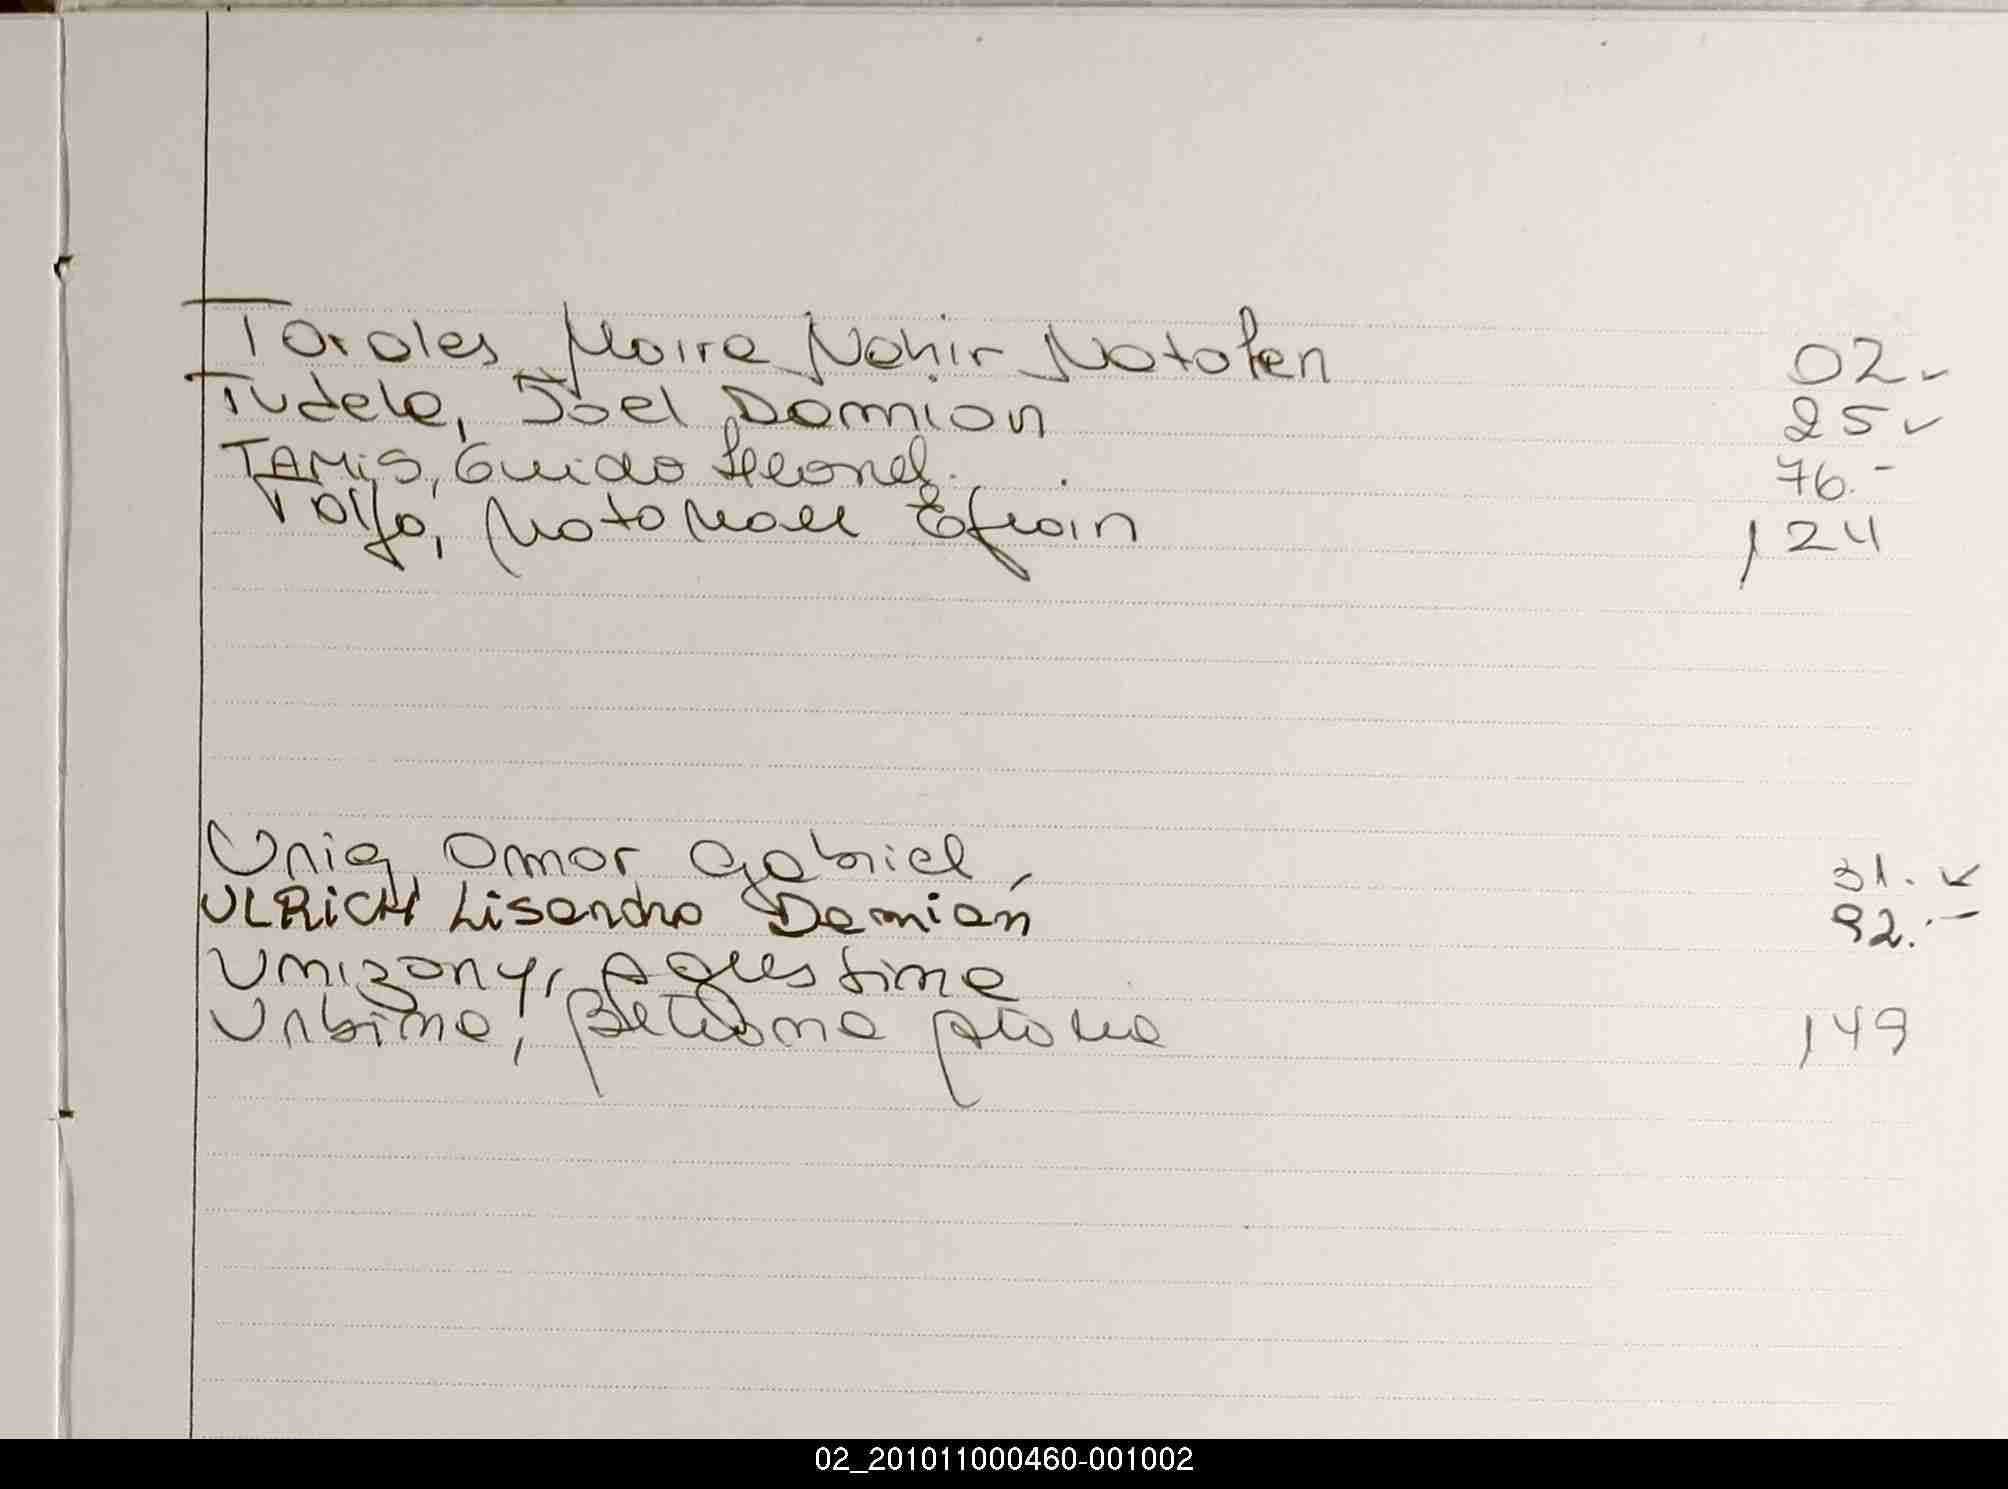 Toroles Moira Nahir Natalen 02.-
Tudela, Joel Damian 25 ✓
TAMiS, Guido Leonel. 76.-
Efrain 124
Omar Gabriel, 31. ✓
ULRiCH Lisandro Damian 92.-
Umizony, Agustina
Urbina, 149
02_201011000460-001002